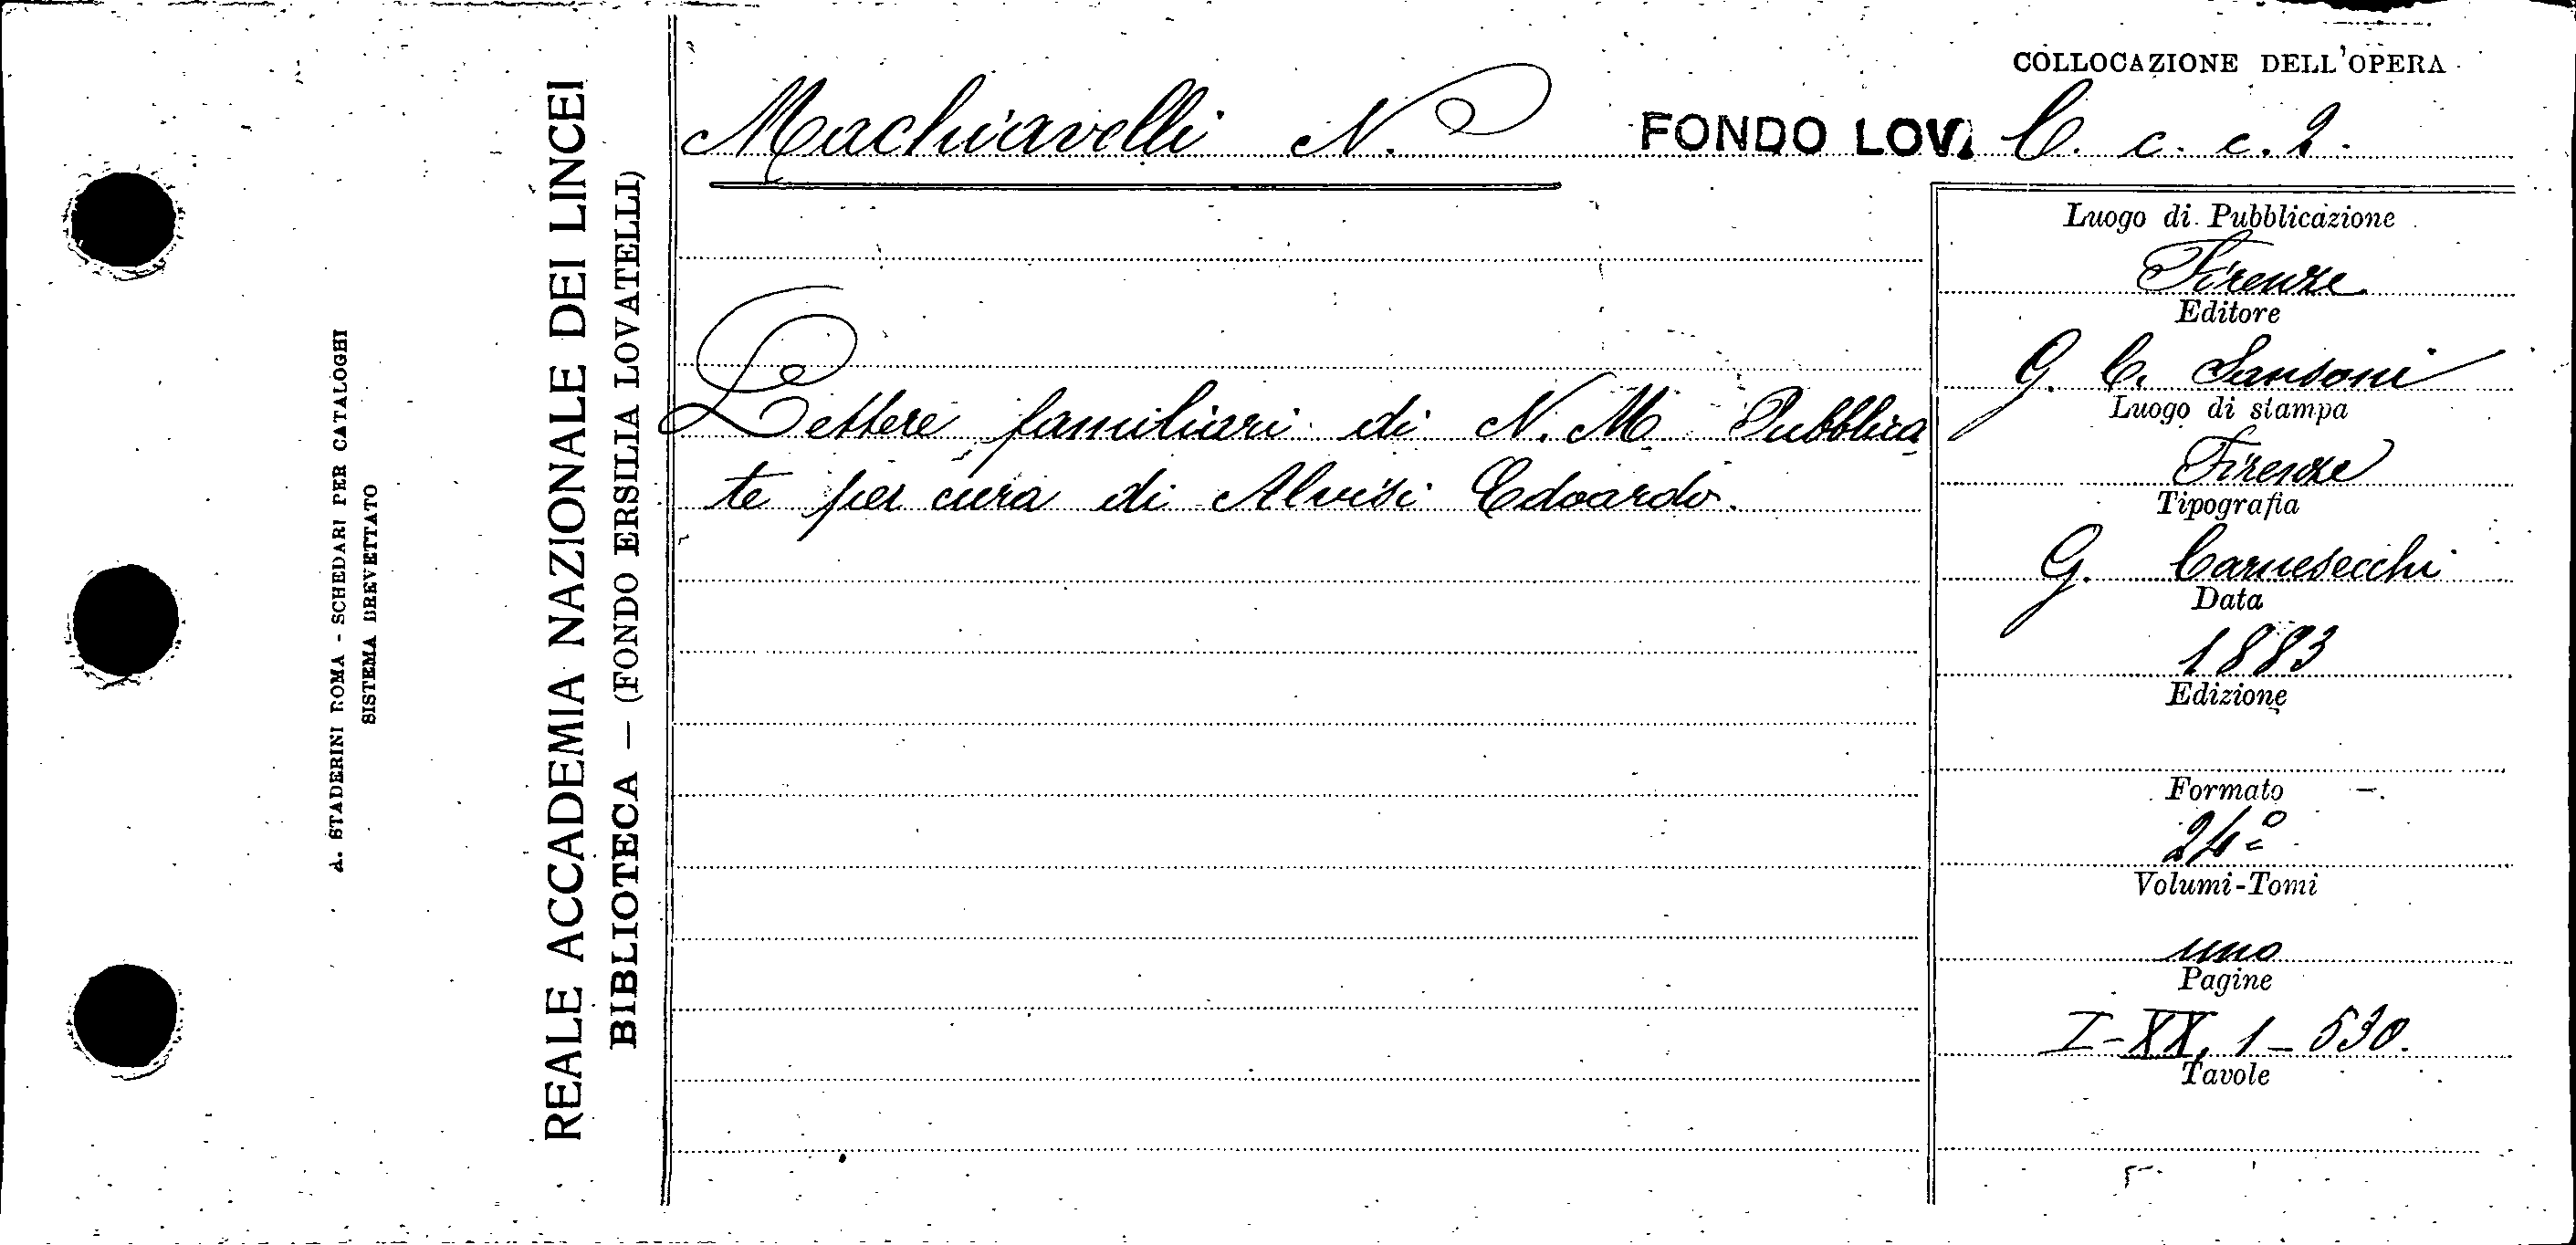 A. STADERINI ROMA - SCHEDARI PER CATALOGHI
SISTEMA BREVETTATO
REALE ACCADEMIA NAZIONALE DEI LINCEI
BIBLIOTECA — (FONDO ERSILIA LOVATELLI)
COLLOCAZIONE DELL'OPERA
Machiavelli N.
FONDO LOV. C. c. c. 2.
Lettere familiari di N. M. Pubblica
te per cura di Alvisi Edoardo.
Luogo di Pubblicazione
Firenze
Editore
G. C. Sansoni
Luogo di stampa
Firenze
Tipografia
G. Carnesecchi
Data
1883
Edizione
Formato
24º
Volumi-Tomi
uno
Pagine
I-XX, 1-530.
Tavole